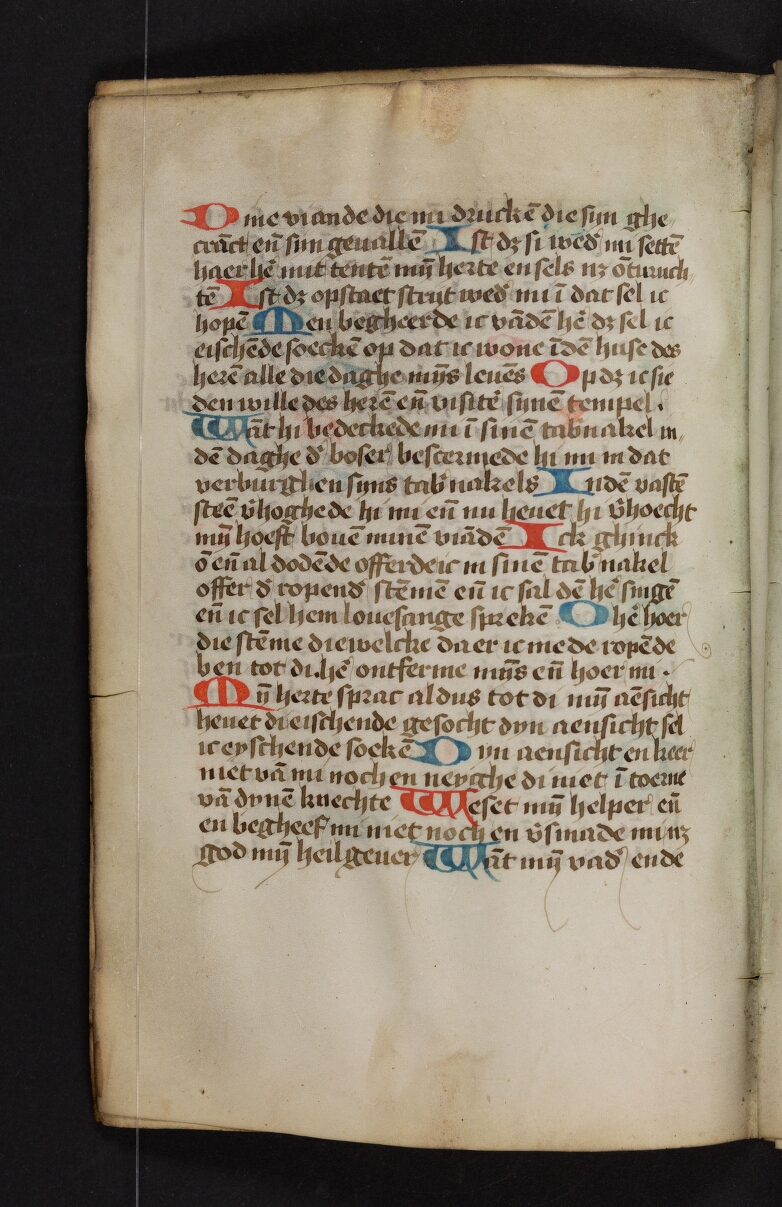 Dine viande die mi druckē die sijn ghe
crāct eñ sijn geuallē Ist dꝫ si wed᷑ mi settē
haer hē mit tentē mijn herte en sels nꝫ ōturuch
tē Ist dꝫ opstaet strijt wed᷑ mi ī dat sel ic
hopē Een begheerde ic vādē hē dꝫ sel ic
eischēde soeckē op dat ic wone īdē huse des
herē alle die daghe mijns leuēs Op dꝫ ic sie
den wille des herē eñ visitē sijnē tempel .
Wāt hi bedeckede mi ī sinē tab᷑nakel in
dē daghe d᷑ boser bescermede hi mi in dat
verburghen sijns tab᷑nakels In dē vastē
steē v᷑hoghede hi mi eñ nu heuet hi v᷑hoecht
mijn hoeft bouē minē viādē Ick ghinck
ō eñ al dodēde offerde ic in sinē tab᷑nakel
offer d᷑ ropend᷑ stēmen eñ ic sal dē hē singē
eñ ic sel hem louesange sprekē O hē hoer
die stēme die welcke daer ic mede ropēde
ben tot di . hē ontferme mijns eñ hoer mi .
Mijn herte sprac aldus tot di mijn aēsicht
heuet di eischende gesocht dijn aensicht sel
ic eyschende soekē Dijn aensicht en keer
niet vā mi noch en neyghe di niet ī toerne
vā dynē knechte Weset mijn helper eñ
en begheef mi niet noch en v᷑smade mi nꝫ
god mijn heilgeuer Wāt mijn vad᷑ ende